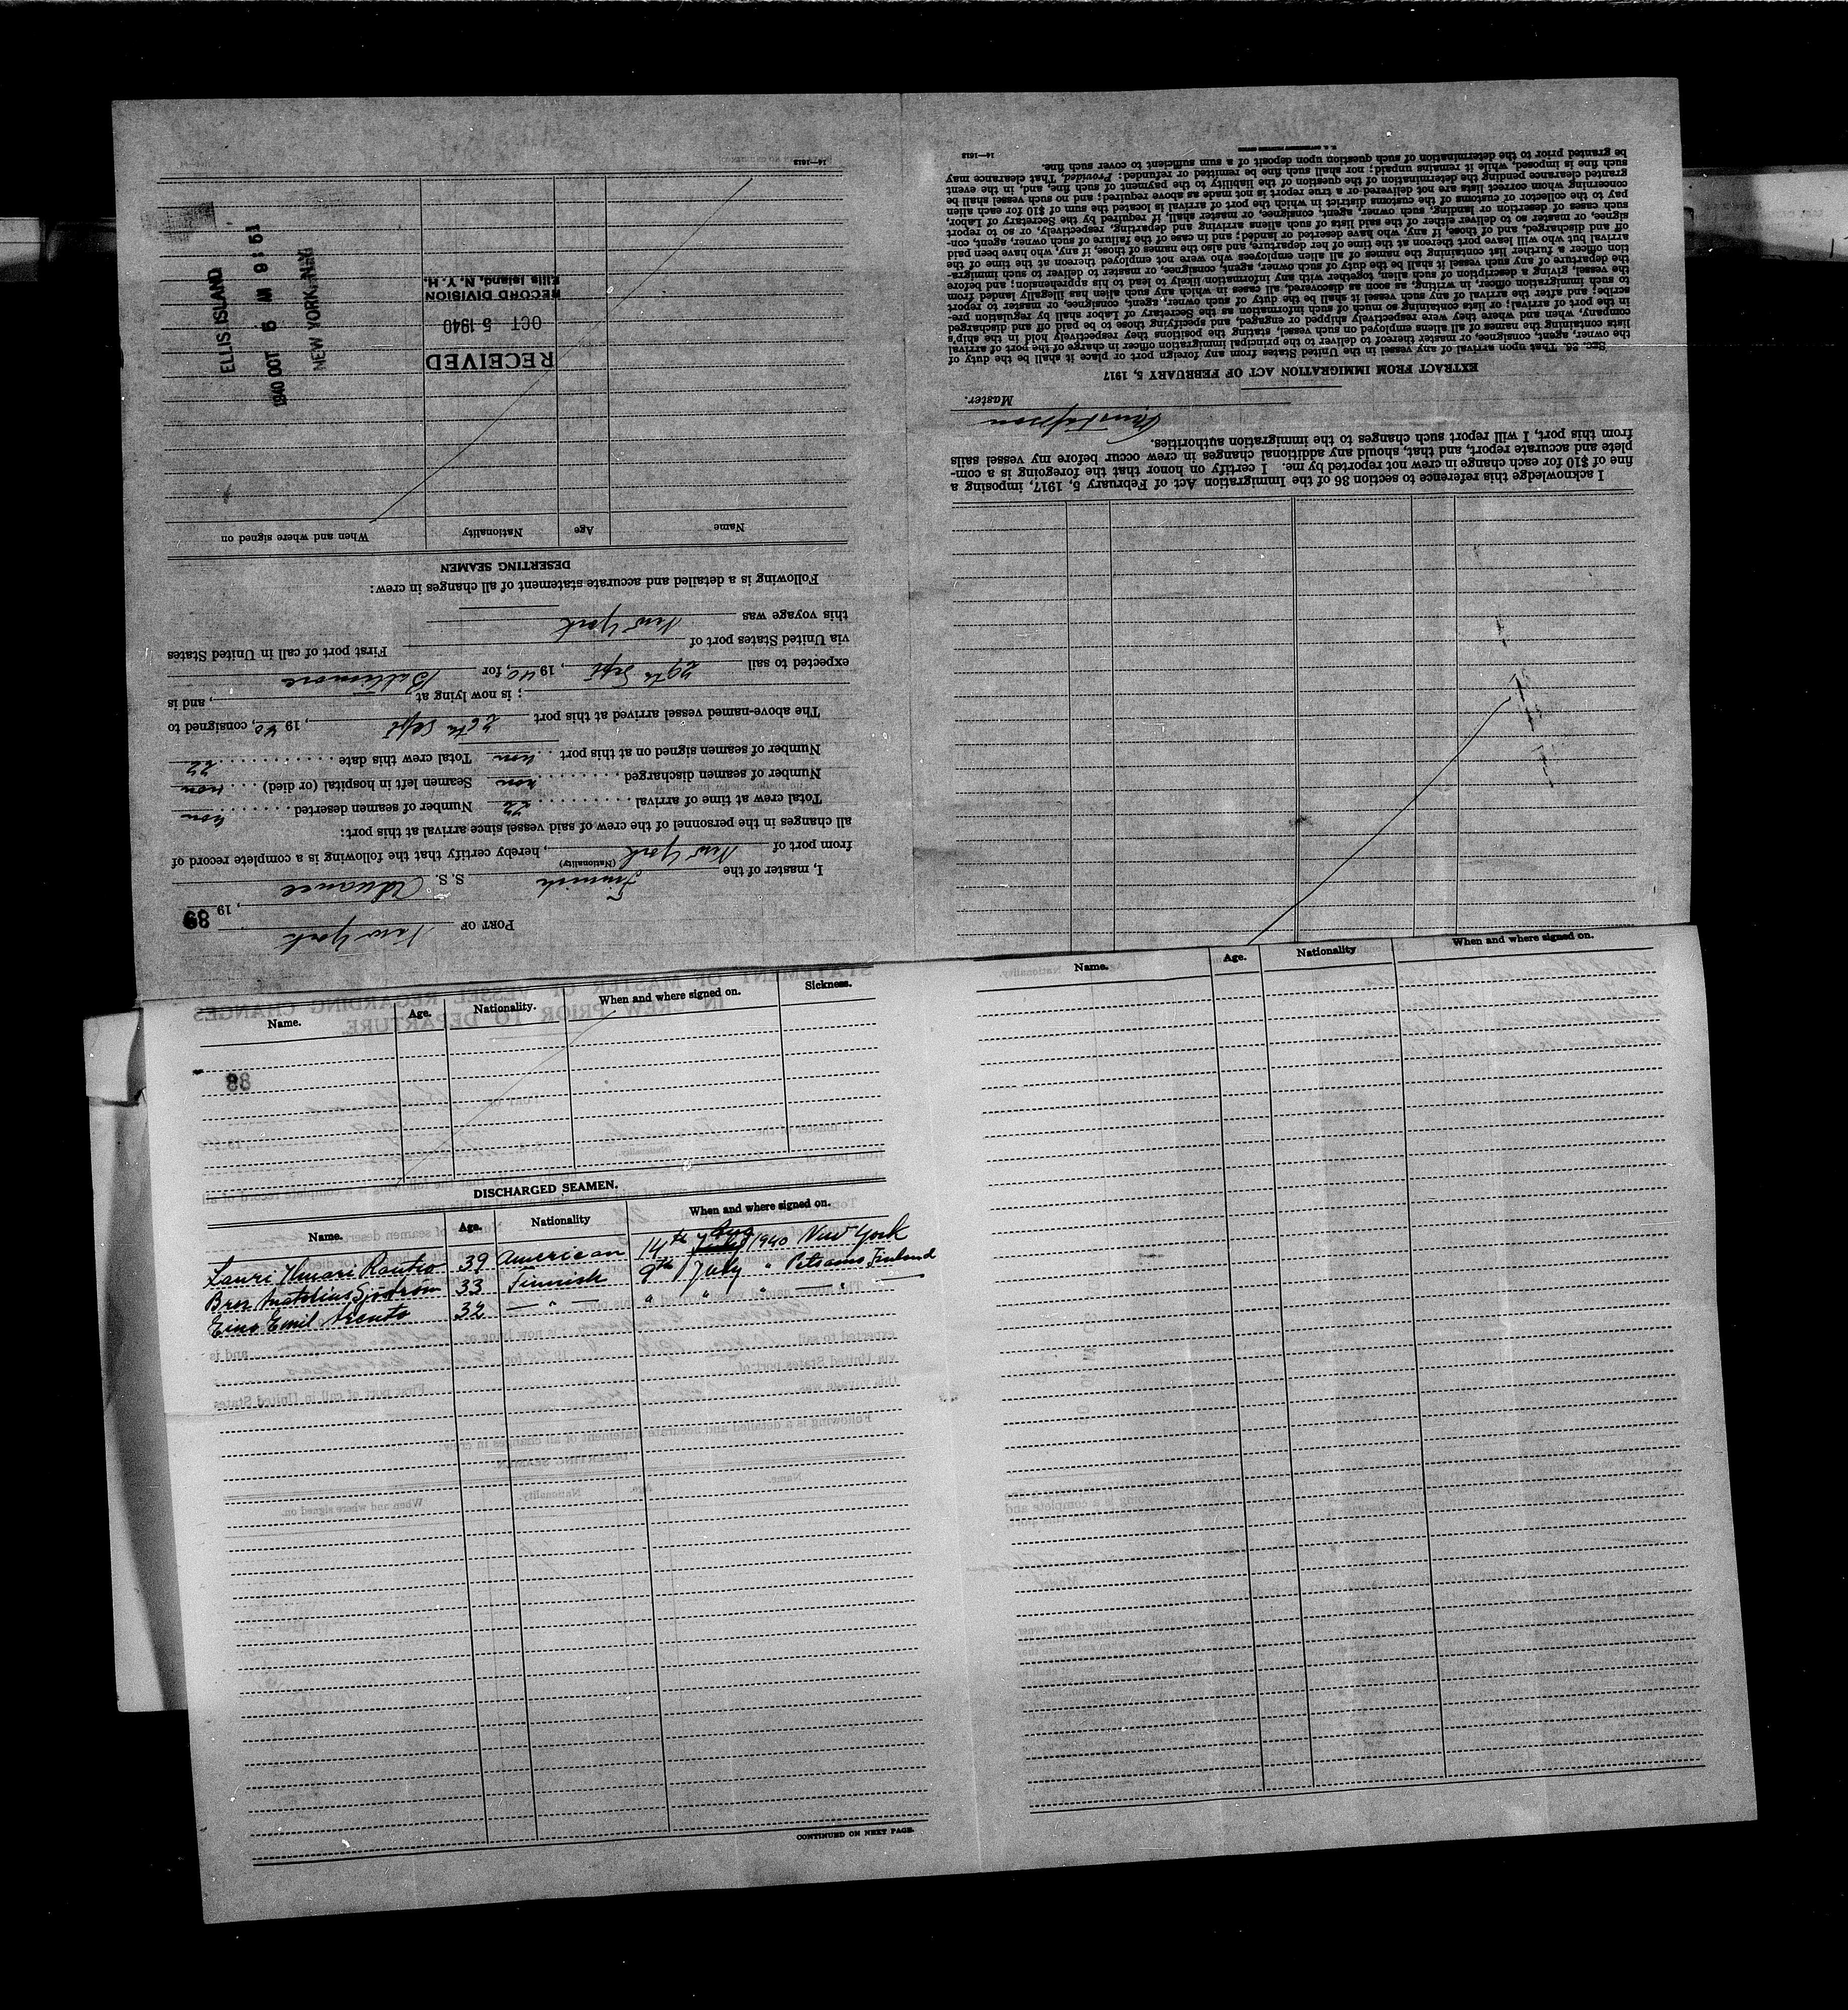 PORT OF New York
, 19
89
I, master of the Finnish S. S. Advance
(Nationality)
from port of New York, hereby certify that the following is a complete record of
all changes in the personnel of the crew of said vessel since arrival at this port:
Total crew at time of arrival 22 Number of seamen deserted non
Number of seamen discharged non Seamen left in hospital (or died) non
Number of seamen signed on at this port non Total crew this date 22
The above-named vessel arrived at this port 26th Sept, 1940, consigned to
; is now lying at , and is
expected to sail 29th Sept, 1940, for Baltimore
via United States port of First port of call in United States
this voyage was New York
Following is a detailed and accurate statement of all changes in crew:
DESERTING SEAMEN
Name Age Nationality When and where signed on
RECEIVED
OCT 5 1940
RECORD DIVISION
Ellis Island, N. Y. H.
ELLIS ISLAND
1940 OCT 5 AM 9:51
NEW YORK, N.Y.
14—1613
I acknowledge this reference to section 36 of the Immigration Act of February 5, 1917, imposing a
fine of $10 for each change in crew not reported by me. I certify on honor that the foregoing is a com-
plete and accurate report, and that, should any additional changes in crew occur before my vessel sails
from this port, I will report such changes to the immigration authorities.
Master.
EXTRACT FROM IMMIGRATION ACT OF FEBRUARY 5, 1917
SEC. 36. That upon arrival of any vessel in the United States from any foreign port or place it shall be the duty of
the owner, agent, consignee, or master thereof to deliver to the principal immigration officer in charge of the port of arrival
lists containing the names of all aliens employed on such vessel, stating the positions they respectively hold in the ship's
company, when and where they were respectively shipped or engaged, and specifying those to be paid off and discharged
in the port of arrival; or lists containing so much of such information as the Secretary of Labor shall by regulation pre-
scribe; and after the arrival of any such vessel it shall be the duty of such owner, agent, consignee, or master to report
to such immigration officer, in writing, as soon as discovered, all cases in which any such alien has illegally landed from
the vessel, giving a description of such alien, together with any information likely to lead to his apprehension; and before
the departure of any such vessel it shall be the duty of such owner, agent, consignee, or master to deliver to such immigra-
tion officer a further list containing the names of all alien employees who were not employed thereon at the time of the
arrival but who will leave port thereon at the time of her departure, and also the names of those, if any, who have been paid
off and discharged, and of those, if any, who have deserted or landed; and in case of the failure of such owner, agent, con-
signee, or master so to deliver either of the said lists of such aliens arriving and departing, respectively, or so to report
such cases of desertion or landing, such owner, agent, consignee, or master shall, if required by the Secretary of Labor,
pay to the collector of customs of the customs district in which the port of arrival is located the sum of $10 for each alien
concerning whom correct lists are not delivered or a true report is not made as above required; and no such vessel shall be
granted clearance pending the determination of the question of the liability to the payment of such fine, and, in the event
such fine is imposed, while it remains unpaid; nor shall such fine be remitted or refunded: Provided, That clearance may
be granted prior to the determination of such question upon deposit of a sum sufficient to cover such fine.
14—1613
U. S. GOVERNMENT PRINTING OFFICE
Name. Age. Nationality. When and where signed on. Sickness.
88
DISCHARGED SEAMEN.
Name. Age. Nationality When and where signed on.
Lauri Ilmari Rautio 39 American 14th Aug 1940 New York
Bror Anatolius Sjöström 33 Finnish 9th July " Petsamo Finland
Eino Emil 32 — " — " " " — " —
CONTINUED ON NEXT PAGE.
Name. Age. Nationality When and where signed on.